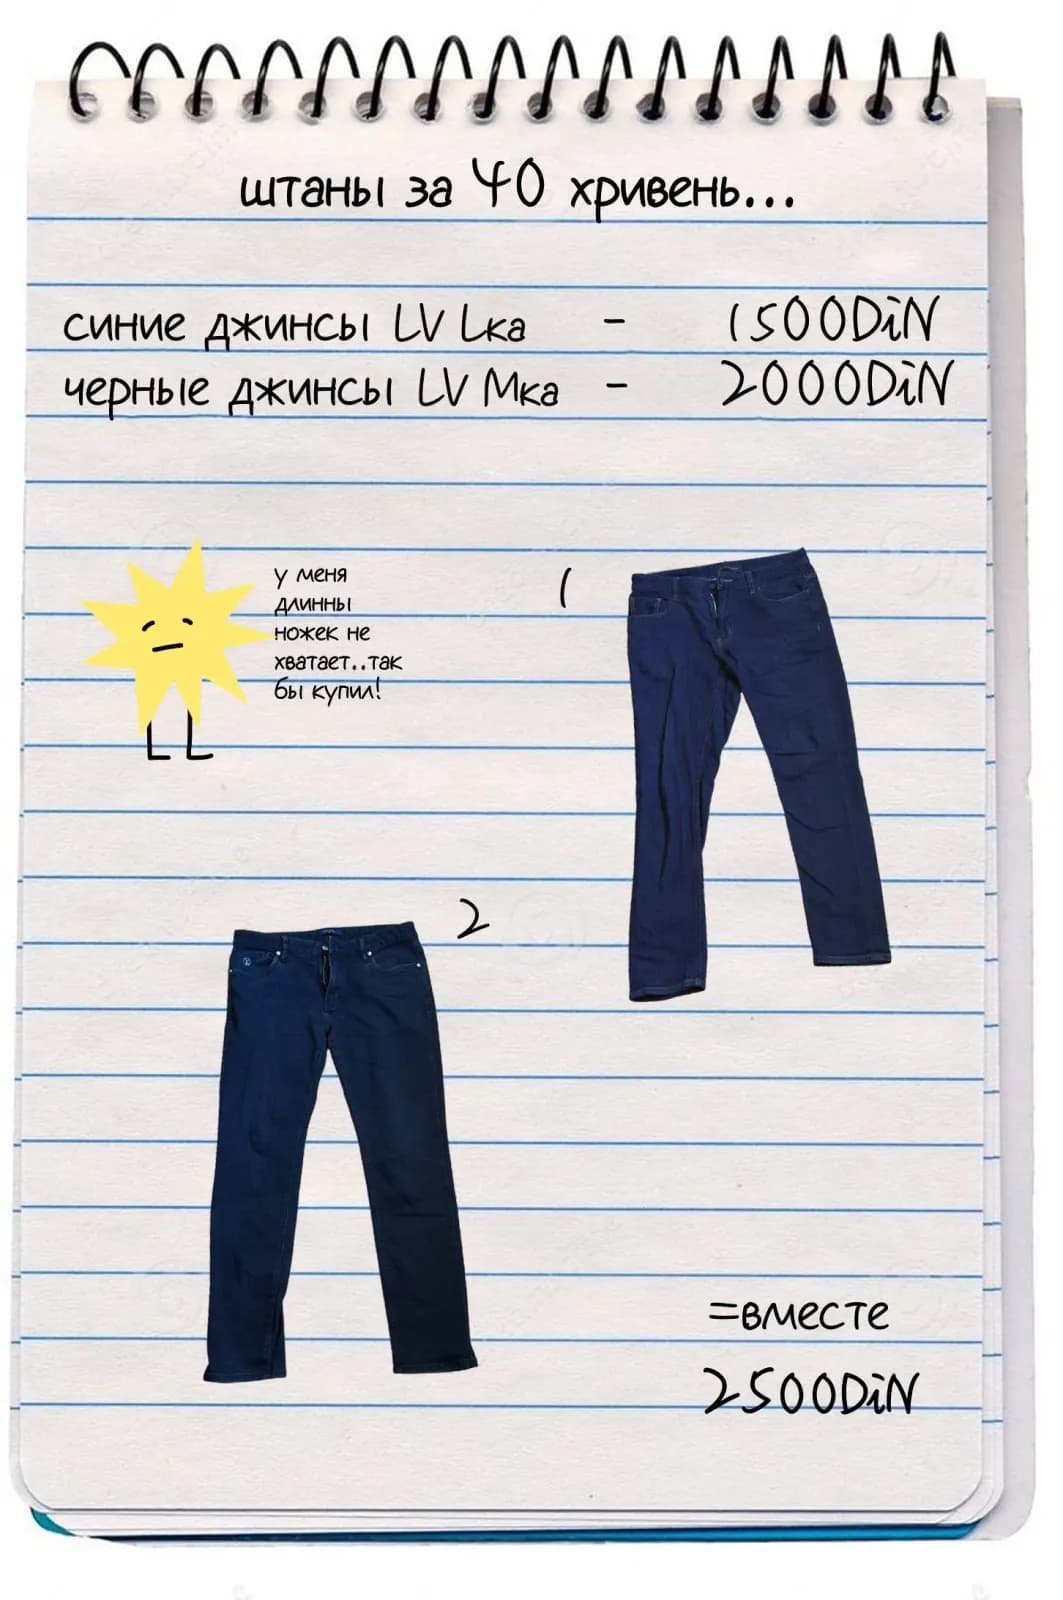 штаны за 40 хривень...
синие джинсы LV Lка - 1500DiN
черные джинсы LV Mка - 2000DiN
у меня
длинны
ножек не
хватает..так
бы купил!
1
2
=вместе
2500DiN